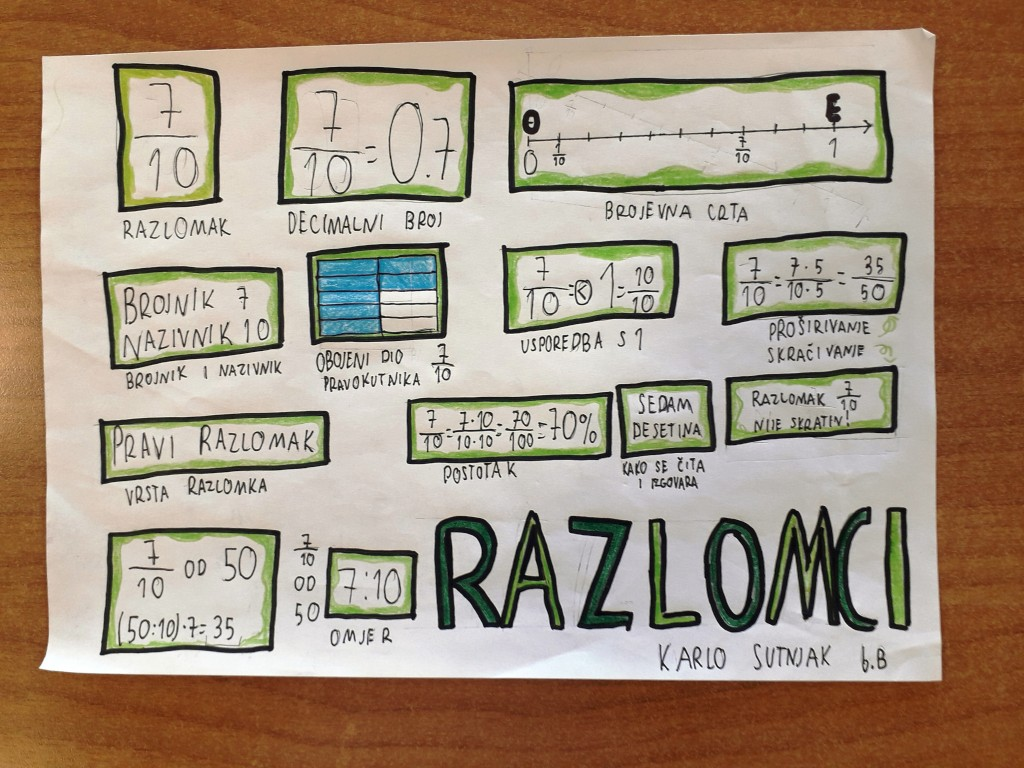 7/10
RAZLOMAK
7/10 = 0.7
DECIMALNI BROJ
O E
0 1/10 7/10 1
BROJEVNA CRTA
BROJNIK 7
NAZIVNIK 10
BROJNIK I NAZIVNIK
OBOJENI DIO
PRAVOKUTNIKA 7/10
7/10 = < 1 = 10/10
USPOREDBA S 1
7/10 = 7·5/10·5 = 35/50
PROŠIRIVANJE
SKRAČIVANJE
PRAVI RAZLOMAK
VRSTA RAZLOMKA
7/10 = 7·10/10·10 = 70/100 = 70%
POSTOTAK
SEDAM
DESETINA
KAKO SE ČITA
I IZGOVARA
RAZLOMAK 7/10
NIJE SKRATIV!
7/10 OD 50
(50:10)·7=35
7/10
OD
50
7:10
OMJER
RAZLOMCI
KARLO SUTNJAK 6.B